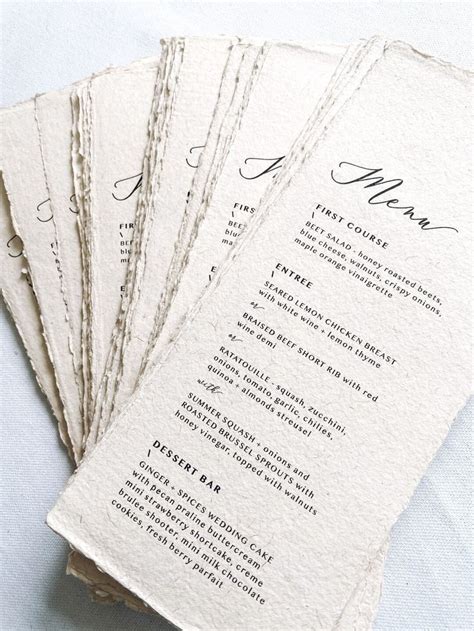 Menu
FIRST COURSE
\
BEET SALAD - honey roasted beets,
blue cheese, walnuts, crispy onions,
maple orange vinaigrette
ENTREE
\
SEARED LEMON CHICKEN BREAST
with white wine + lemon thyme
or
BRAISED BEEF SHORT RIB with red
wine demi
or
RATATOUILLE - squash, zucchini,
onions, tomato, garlic, chilies,
quinoa + almonds streusel
with
SUMMER SQUASH + onions and
ROASTED BRUSSEL SPROUTS with
honey vinegar, topped with walnuts
DESSERT BAR
\
GINGER + SPICES WEDDING CAKE
with pecan praline buttercream
mini strawberry shortcake, creme
brulee shooter, mini milk chocolate
cookies, fresh berry parfait